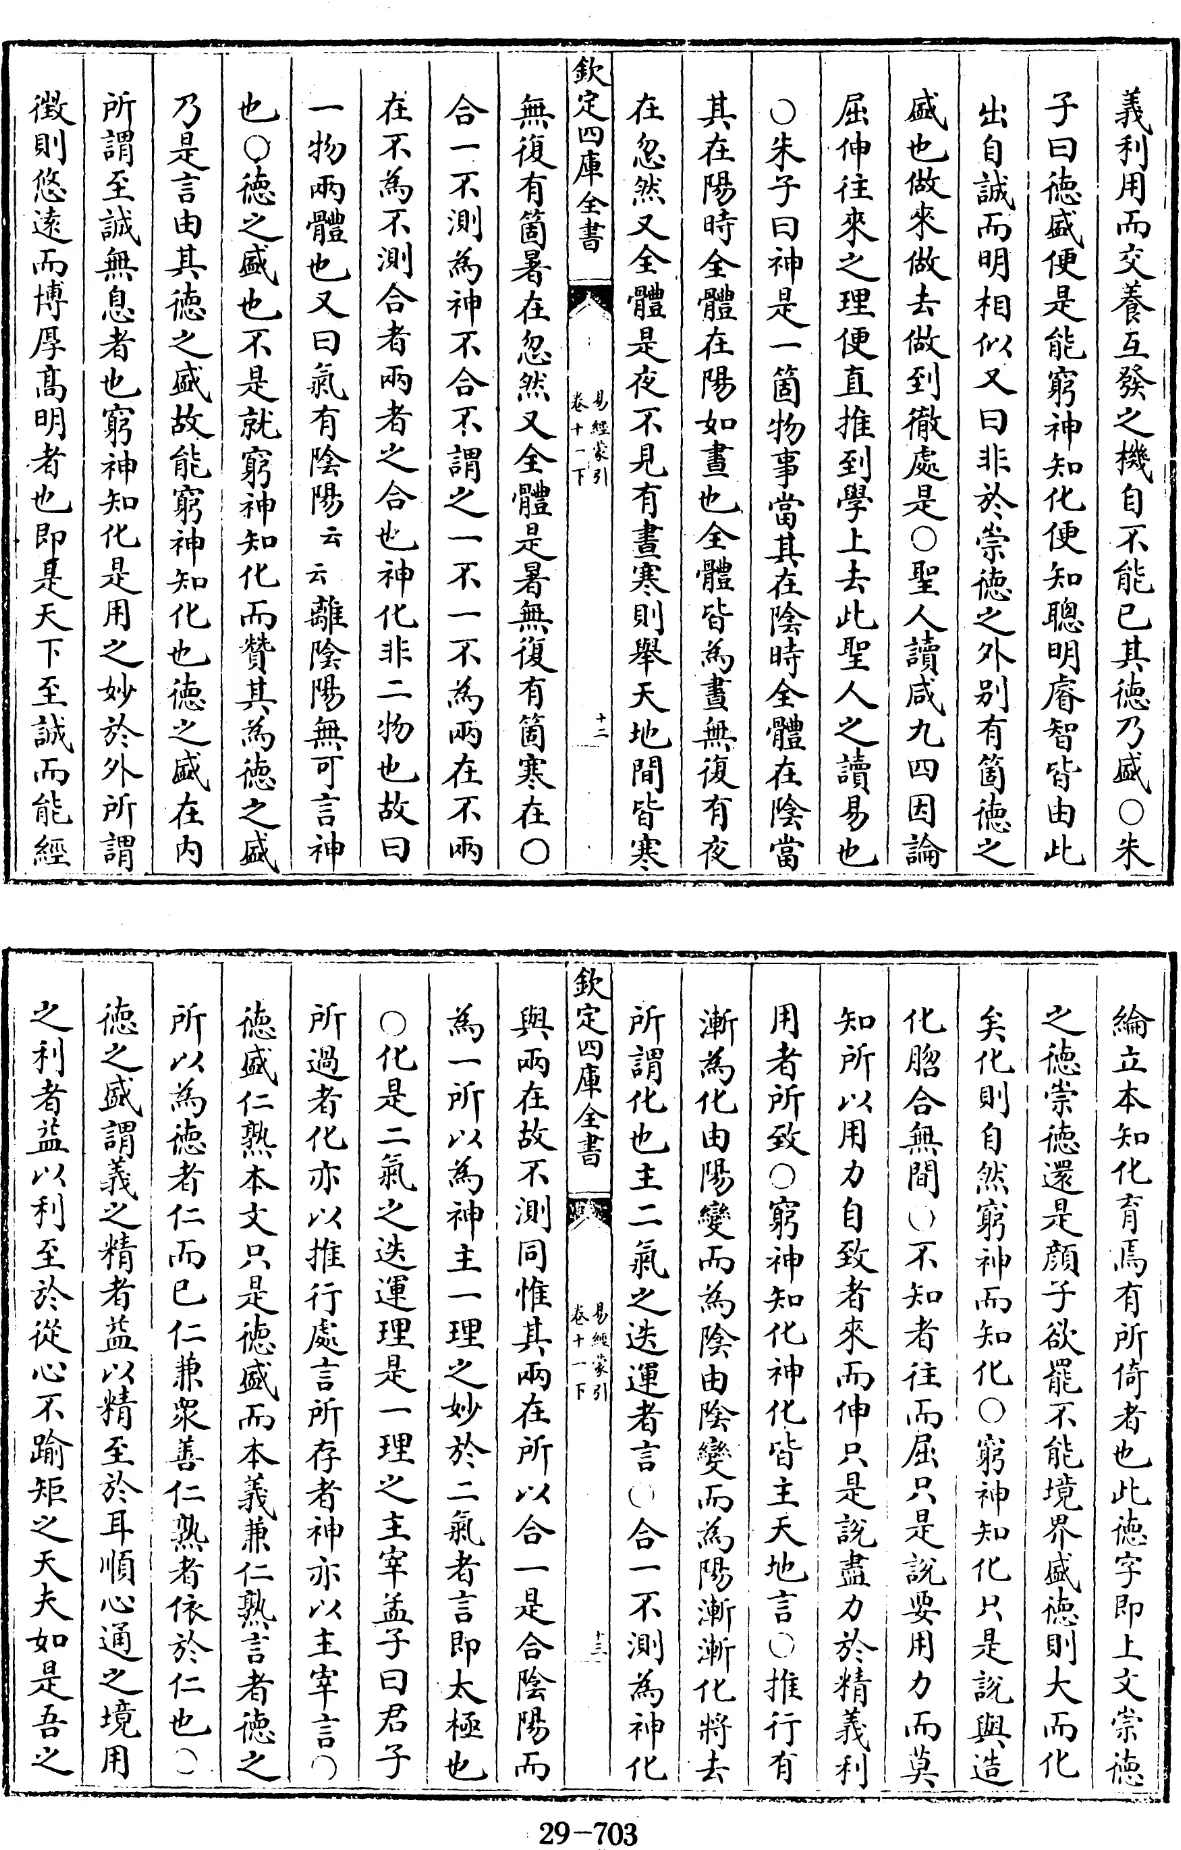 義利用而交養互發之機自不能已其徳乃盛○朱
子曰徳盛便是能窮神知化便知聰明睿智皆由此
出自誠而明相似又曰非於崇徳之外别有箇徳之
盛也做來做去做到徹處是○聖人讀咸九四因論
屈伸往來之理便直推到學上去此聖人之讀易也
○朱子曰神是一箇物事當其在陰時全體在陰當
其在陽時全體在陽如晝也全體皆為晝無復有夜
在忽然又全體是夜不見有晝寒則舉天地間皆寒
欽定四庫全書
易經蒙引
卷十一下
十二
無復有箇暑在忽然又全體是暑無復有箇寒在○
合一不測為神不合不謂之一不一不為兩在不兩
在不為不測合者兩者之合也神化非二物也故曰
一物兩體也又曰氣有陰陽云云離陰陽無可言神
也○徳之盛也不是就窮神知化而贊其為徳之盛
乃是言由其徳之盛故能窮神知化也徳之盛在内
所謂至誠無息者也窮神知化是用之妙於外所謂
徴則悠遠而博厚髙明者也即是天下至誠而能經
綸立本知化育焉有所倚者也此徳字即上文崇徳
之徳崇徳還是顔子欲罷不能境界盛徳則大而化
矣化則自然窮神而知化○窮神知化只是說與造
化脗合無間○不知者往而屈只是說要用力而莫
知所以用力自致者來而伸只是說盡力於精義利
用者所致○窮神知化神化皆主天地言○推行有
漸為化由陽變而為陰由陰變而為陽漸漸化將去
所謂化也主二氣之迭運者言○合一不測為神化
欽定四庫全書
易經蒙引
卷十一下
十三
與兩在故不測同惟其兩在所以合一是合陰陽而
為一所以為神主一理之妙於二氣者言即太極也
○化是二氣之迭運理是一理之主宰孟子曰君子
所過者化亦以推行處言所存者神亦以主宰言○
徳盛仁熟本文只是徳盛而本義兼仁熟言者徳之
所以為徳者仁而已仁兼衆善仁熟者依於仁也○
徳之盛謂義之精者益以精至於耳順心通之境用
之利者益以利至於從心不踰矩之天夫如是吾之
29-703